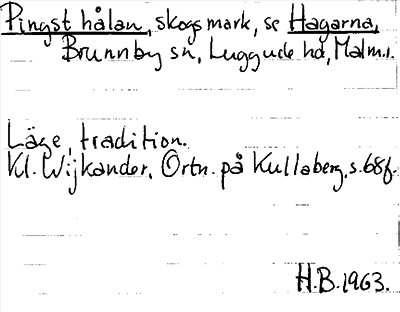 Pingst hålan, skogsmark, se Hagarna,
Brunnby sn, Luggude hd, Malm.l.
Läge, tradition.
Kl. Wijkander, Ortn. på Kullaberg, s. 68f.
H.B. 1963.